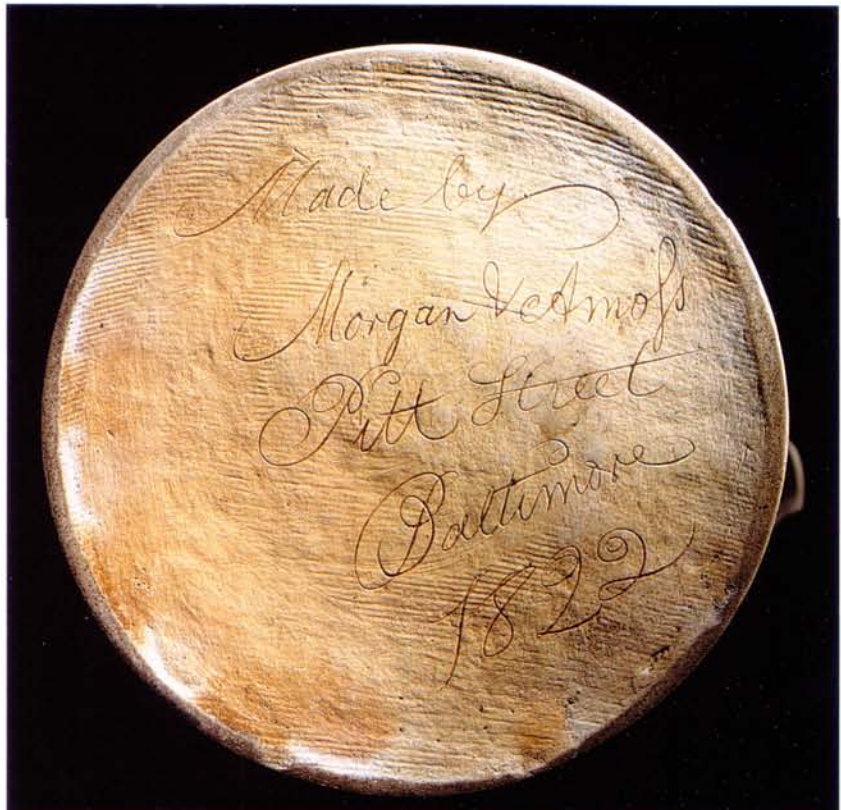 Made by
Morgan & Amoſs
Pitt Street
Baltimore
1822